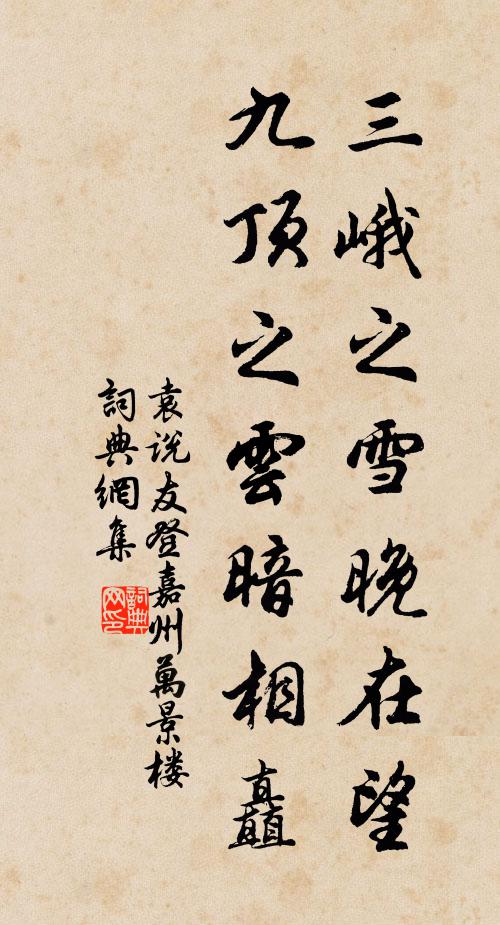 三峨之雪晚在望
九顶之雲暗相矗
袁说友登嘉州萬景楼
詞典網集
詞典网印